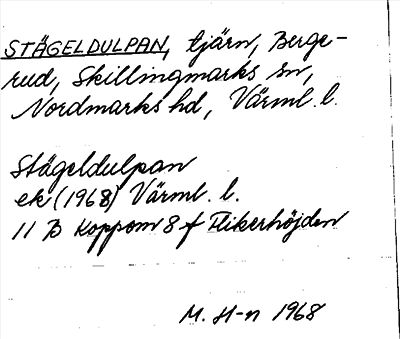 STÄGELDULPAN, tjärn, Berge-
rud, Skillingmarks sn,
Nordmarks hd, Värml. l.
Stägeldulpan
ek (1968) Värml. l.
11 B Koppom 8 f Flikerhöjden
M. H-n 1968